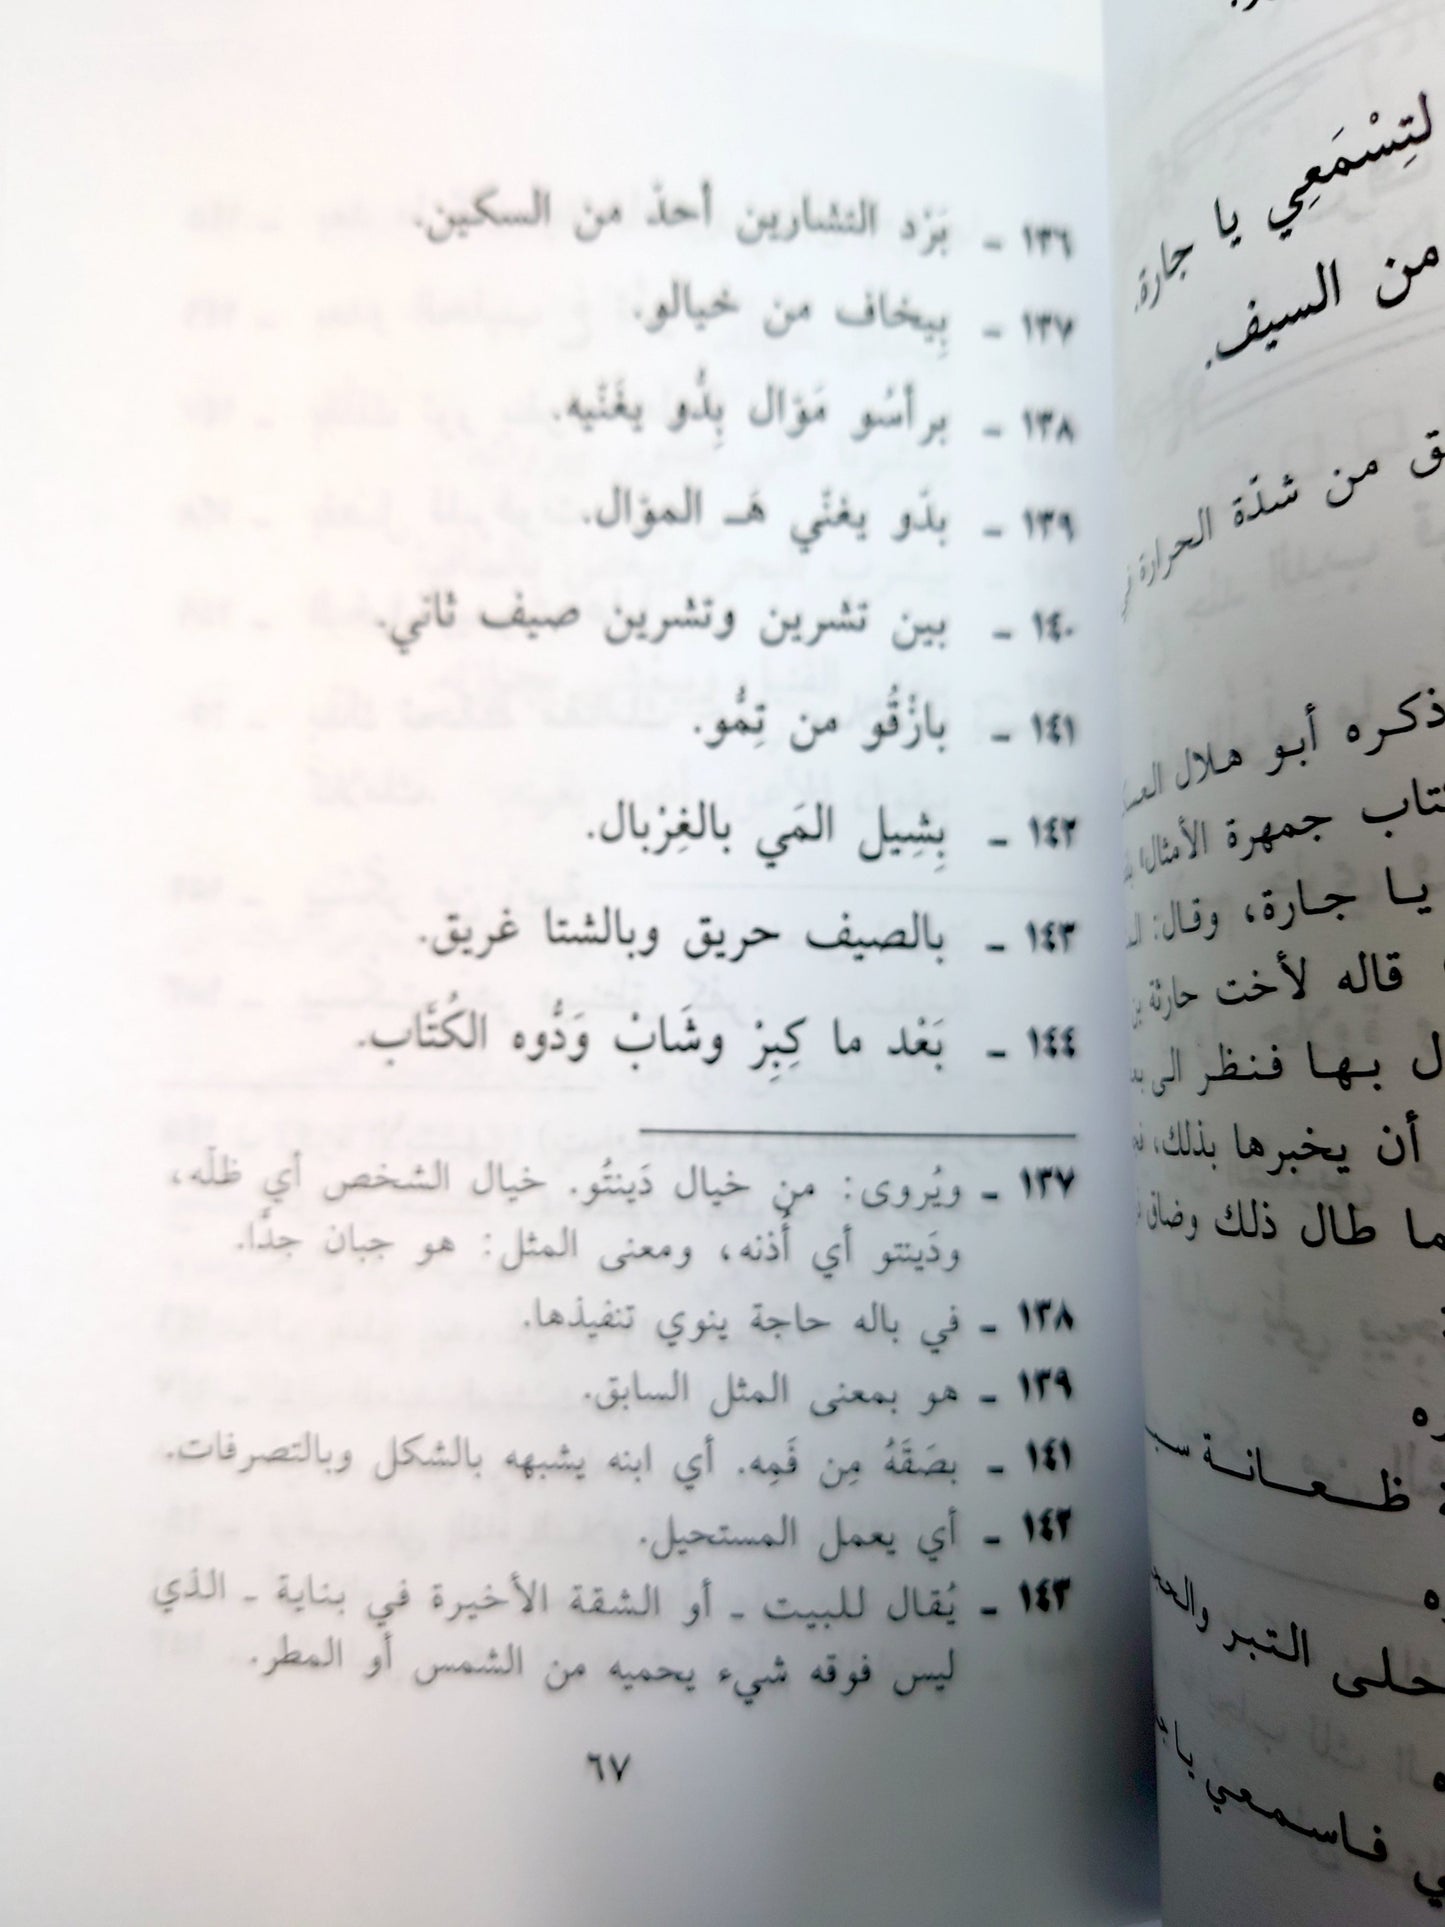 ١٣٦ ـ بَرْد التشارين أحدّ من السكين.
١٣٧ ـ بِيخاف من خيالو.
١٣٨ ـ برأسُو مَوّال بِدُّو يغَنّيه.
١٣٩ ـ بدّو يغنّي هَـ الموّال.
١٤٠ ـ بين تشرين وتشرين صيف ثاني.
١٤١ ـ بازْقُو من تِمُّو.
١٤٢ ـ بِشِيل المَي بالغِرْبال.
١٤٣ ـ بالصيف حريق وبالشتا غريق.
١٤٤ ـ بَعْد ما كِبِرْ وشَابْ وَدُّوه الكُتَّاب.
١٣٧ ـ ويُروى: من خيال دَينتُو. خيال الشخص أي ظلّه،
ودَينتو أي أُذنه، ومعنى المثل: هو جبان جدًّا.
١٣٨ ـ في باله حاجة ينوي تنفيذها.
١٣٩ ـ هو بمعنى المثل السابق.
١٤١ ـ بصَقَهُ مِن فَمِه. أي ابنه يشبهه بالشكل وبالتصرفات.
١٤٢ ـ أي يعمل المستحيل.
١٤٣ ـ يُقال للبيت ـ أو الشقة الأخيرة في بناية ـ الذي
ليس فوقه شيء يحميه من الشمس أو المطر.
٦٧
لتِسْمَعِي يا جارة.
من السيف.
من شدّة الحرارة
ذكره أبو هلال
جمهرة الأمثال
يا جارة، وقال:
قاله لأخت حارثة بن
بها فنظر الى
أن يخبرها بذلك،
طال ذلك وضاق
ظعانة
التبر
فاسمعي